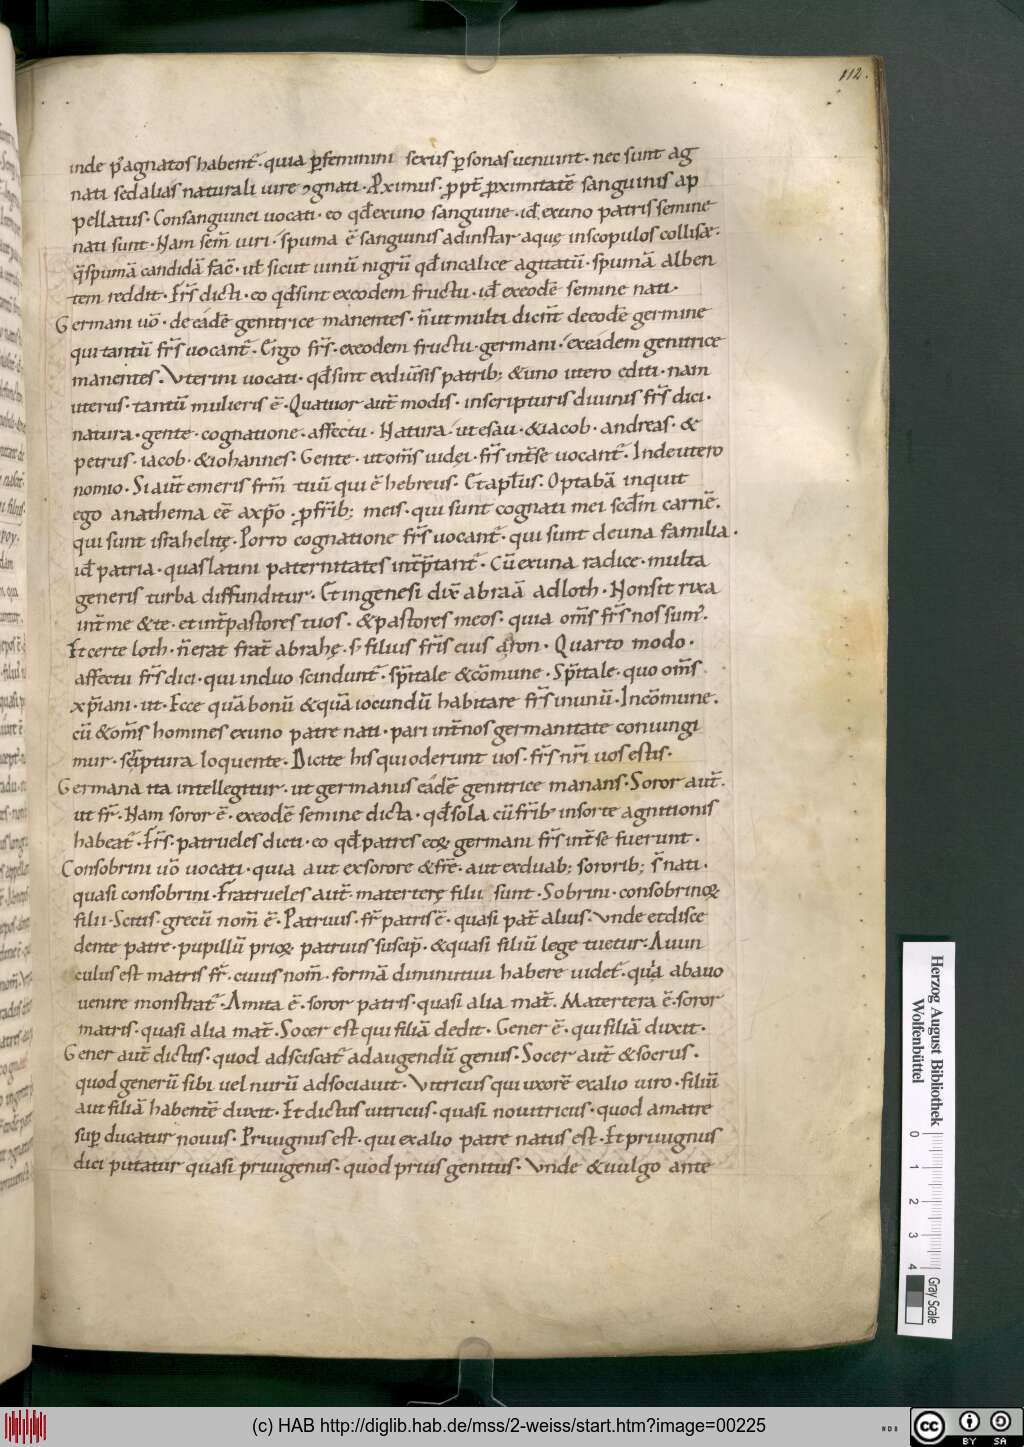 112.
inde p̄ agnatos habent̄ · quia ꝑ feminini sexus ꝑsonas ueniunt · nec sunt ag
nati sed alias naturali iure ɔgnati · Ꝓximus · ꝓpt̄ ꝓximitatē sanguinis ap
pellatus · Consanguinei uocati · eo qđ ex uno sanguine · id ē ex uno patris semine
nati sunt · Nam sem̄ uiri · spuma ē sanguinis ad instar aquę in scopulos collisæ ·
q̄ spumā candidā fac̄ · uł sicut uinū nigrū qđ in calice agitatū · spumā alben
tem reddit · Fr̄s dicti · eo qđ sint ex eodem fructu · id ē ex eodē semine nati ·
Germani uō · de eadē genitrice manentes · n̄ ut multi dicn̄t de eodē germine
qui tantū fr̄s uocant̄ · Ergo fr̄s · ex eodem fructu · germani · ex eadem genitrice
manentes · Vterini uocati · qđ sint ex diūsis patrib; & uno utero editi · nam
uterus · tantū mulieris ē · Quatuor aut̄ modis · in scripturis diuinis fr̄s dici ·
natura · gente · cognatione · affectu · Natura · ut esau · & iacob · andreas · &
petrus · iacob · & iohannes · Gente · ut om̄s iudęi · fr̄s int̄ se uocant̄ · In deutero
nomio · Si aut̄ emeris fr̄m tuū qui ē hebreus · Et apłus · Optabā inquit
ego anathema eē a xp̄o · ꝓ fr̄ib; meis · qui sunt cognati mei scđm carnē ·
qui sunt israhelitę · Porro cognatione fr̄s uocant̄ · qui sunt de una familia ·
id ē patria · quas latini paternitates int̄p̄tant̄ · Cū ex una radice · multa
generis turba diffunditur · Et in genesi dix̄ abraā ad loth · Non sit rixa
int̄ me & te · et int̄ pastores tuos · & pastores meos · quia om̄s fr̄s nos sum̄ ·
Et certe loth · n̄ erat frat̄ abrahę · s· filius fr̄is eius aron · Quarto modo ·
affectu fr̄s dici · qui in duo scindunt̄ · sp̄itale & cōmune · Sp̄itale · quo om̄s
xp̄iani · ut · Ecce quā bonū & quā iocundū habitare fr̄s in unū · In cōmune ·
cū & om̄s homines ex uno patre nati · pari int̄ nos germanitate coniungi
mur · scriptura loquente · Dicite his qui oderunt uos · fr̄s nr̄i uos estis ·
Germana ita intellegitur · ut germanus eadē genitrice manans · Soror aut̄ ·
ut fr̄ · Nam soror ē · ex eodē semine dicta · qđ sola cū fr̄ib in sorte agnitionis
habeat̄ · Fr̄s · patrueles dicti · eo qđ patres eoꝝ germani fr̄s int̄ se fuerunt ·
Consobrini uō uocati · quia aut ex sorore & fr̄e · aut ex duab; sororib; s̄ nati ·
quasi consobrini · Fratrueles aut̄ · materterę filii sunt · Sobrini · consobrinoꝝ
filii · Scitis · grecū nom̄ ē · Patruus · fr̄ patris ē · quasi pat̄ alius · Vnde et disce
dente patre · pupillū prioꝝ patruus suscip̄ · & quasi filiū lege tuetur · Auun
culus est matris fr̄ · cuius nom̄ · formā diminutiui habere uidet̄ · quia ab auo
uenire monstrat̄ · Amita ē · soror patris · quasi alia mat̄ · Matertera ē · soror
matris · quasi alia mat̄ · Socer est qui filiā dedit · Gener ē · qui filiā duxit ·
Gener aut̄ dictus · quod adsciscat̄ ad augendū genus · Socer aut̄ & socrus ·
quod generū sibi uel nurū adsociauit · Vitricus qui uxorē ex alio uiro · filiū
aut filiā habentē duxit · Et dictus uitricus · quasi nouitricus · quod a matre
suꝑ ducatur nouus · Priuignus est · qui ex alio patre natus est · Et priuignus
dici putatur quasi priuigenus · quod prius genitus · Vnde & uulgo ante
Herzog August Bibliothek
Wolfenbüttel
0 1 2 3 4
Gray Scale
(c) HAB http://diglib.hab.de/mss/2-weiss/start.htm?image=00225
WDB
cc BY SA